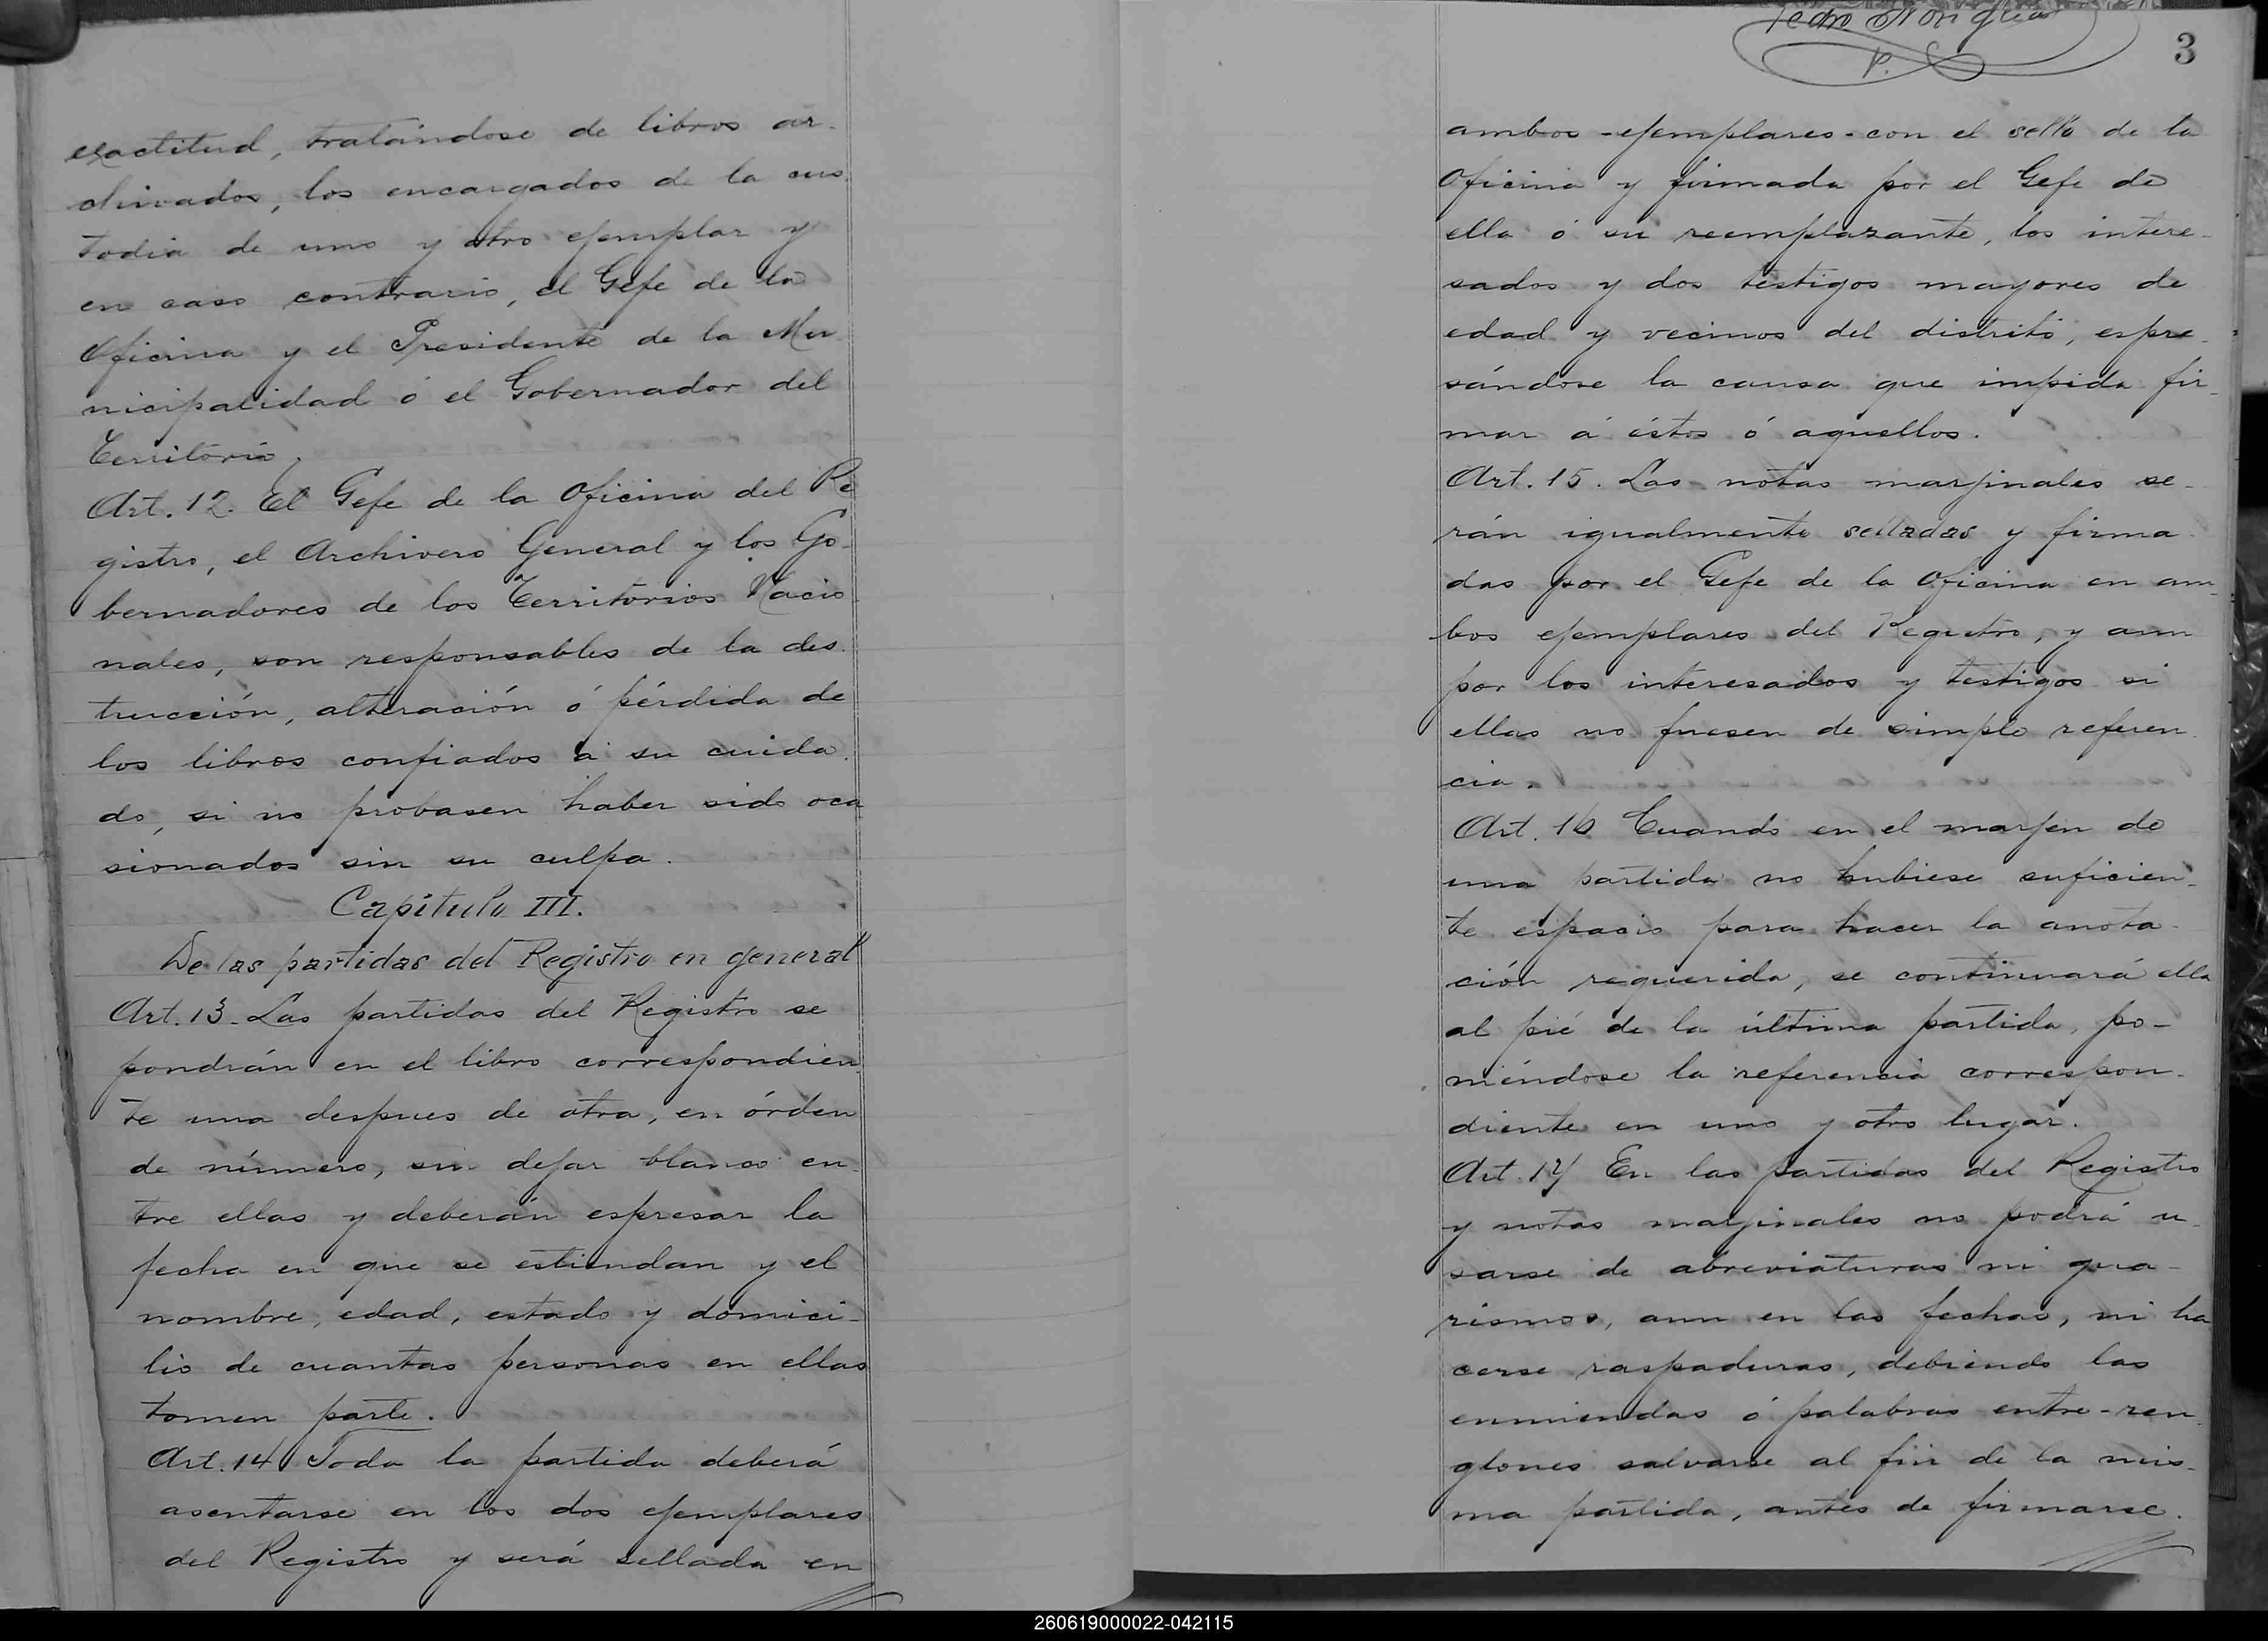 exactitud, tratándose de libros ar-
chivados, los encargados de la cus-
todia de uno y otro ejemplar y
en caso contrario, el Gefe de la
Oficina y el Presidente de la Mu-
nicipalidad ó el Gobernador del
Territorio.
Art. 12. El Gefe de la Oficina del Re
gistro, el Archivero General y los Go-
bernadores de los Territorios Nacio-
nales, son responsables de la des-
trucción, alteración ó pérdida de
los libros confiados á su cuida-
do, si no probasen haber sido oca
sionados sin su culpa.
Capítulo III.
De las partidas del Registro en general
Art. 13. Las partidas del Registro se
pondrán en el libro correspondien-
te una despues de otra, en órden
de número, sin dejar blanco en-
tre ellas y deberán espresar la
fecha en que se estiendan y el
nombre, edad, estado y domici-
lio de cuantas personas en ellas
tomen parte.
Art. 14 Toda la partida deberá
asentarse en los dos ejemplares
del Registro y será sellada en
Pedro
P.
3
ambos - ejemplares - con el sello de la
Oficina y firmada por el Gefe de
ella ó su reemplazante, los intere-
sados y dos testigos mayores de
edad y vecinos del distrito, espre-
sándose la causa que impida fir-
mar á éstos ó aquellos.
Art. 15. Las notas marjinales se-
rán igualmente selladas y firma-
das por el Gefe de la Oficina en am-
bos ejemplares del Registro, y aun
por los interesados y testigos si
ellas no fuesen de simple referen-
cia.
Art. 16 Cuando en el marjen de
una partida no hubiese suficien-
te espacio para hacer la anota-
ción requerida, se continuará ella
al pié de la última partida, po-
niéndose la referencia correspon-
diente en uno y otro lugar.
Art. 17 En las partidas del Registro
y notas marjinales no podrá u-
sarse de abreviaturas ni gua-
rismos, aun en las fechas, ni ha
cerse raspaduras, debiendo las
enmiendas ó palabras entre-ren-
glones salvarse al fin de la mis-
ma partida, antes de firmarse.
260619000022-042115